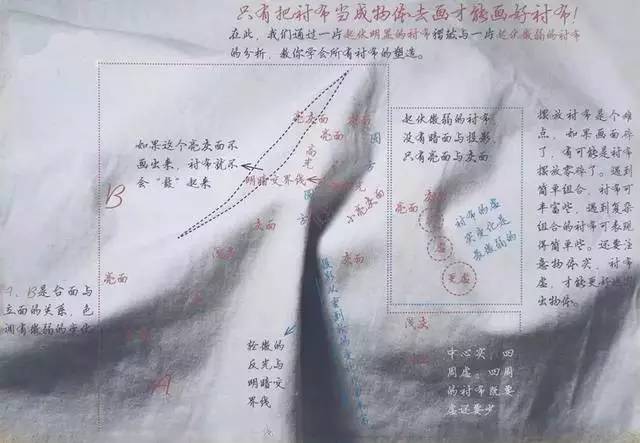 只有把衬布当成物体去画才能画好衬布!
在此，我们通过一片起伏明显的衬布褶皱与一片起伏微弱的衬布
的分析，教你学会所有衬布的塑造。
如果这个亮灰面不
画出来，衬布就不
会“鼓”起来
亮灰面
亮面
高光
明暗交界线
B
亮面
灰面
A、B是台面与
立面的关系，色
调有微弱的变化
A
轻微的
反光与
明暗交
界线
小亮灰面
灰面
起伏微弱的衬布
没有暗面与投影，
只有亮面与灰面
亮面
灰
衬布的虚
实变化是
最微弱的
实
更虚
浅灰
中心实，四
周虚。四周
的衬布既要
虚还要少
摆放衬布是个难
点，如果画面碎
了，有可能是衬布
摆放零碎了。遇到
简单组合，衬布可
丰富些，遇到复杂
组合的衬布可表现
得简单些。还要注
意物体实，衬布
虚，才能更好
出物体。